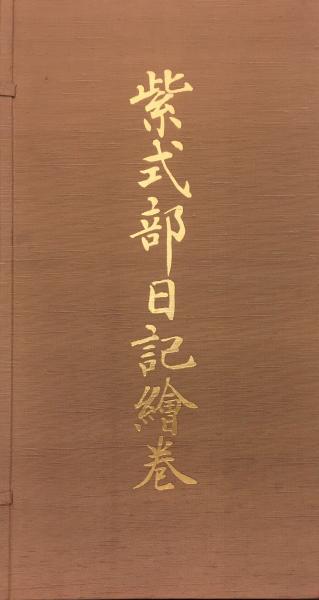 紫式部日記繪巻